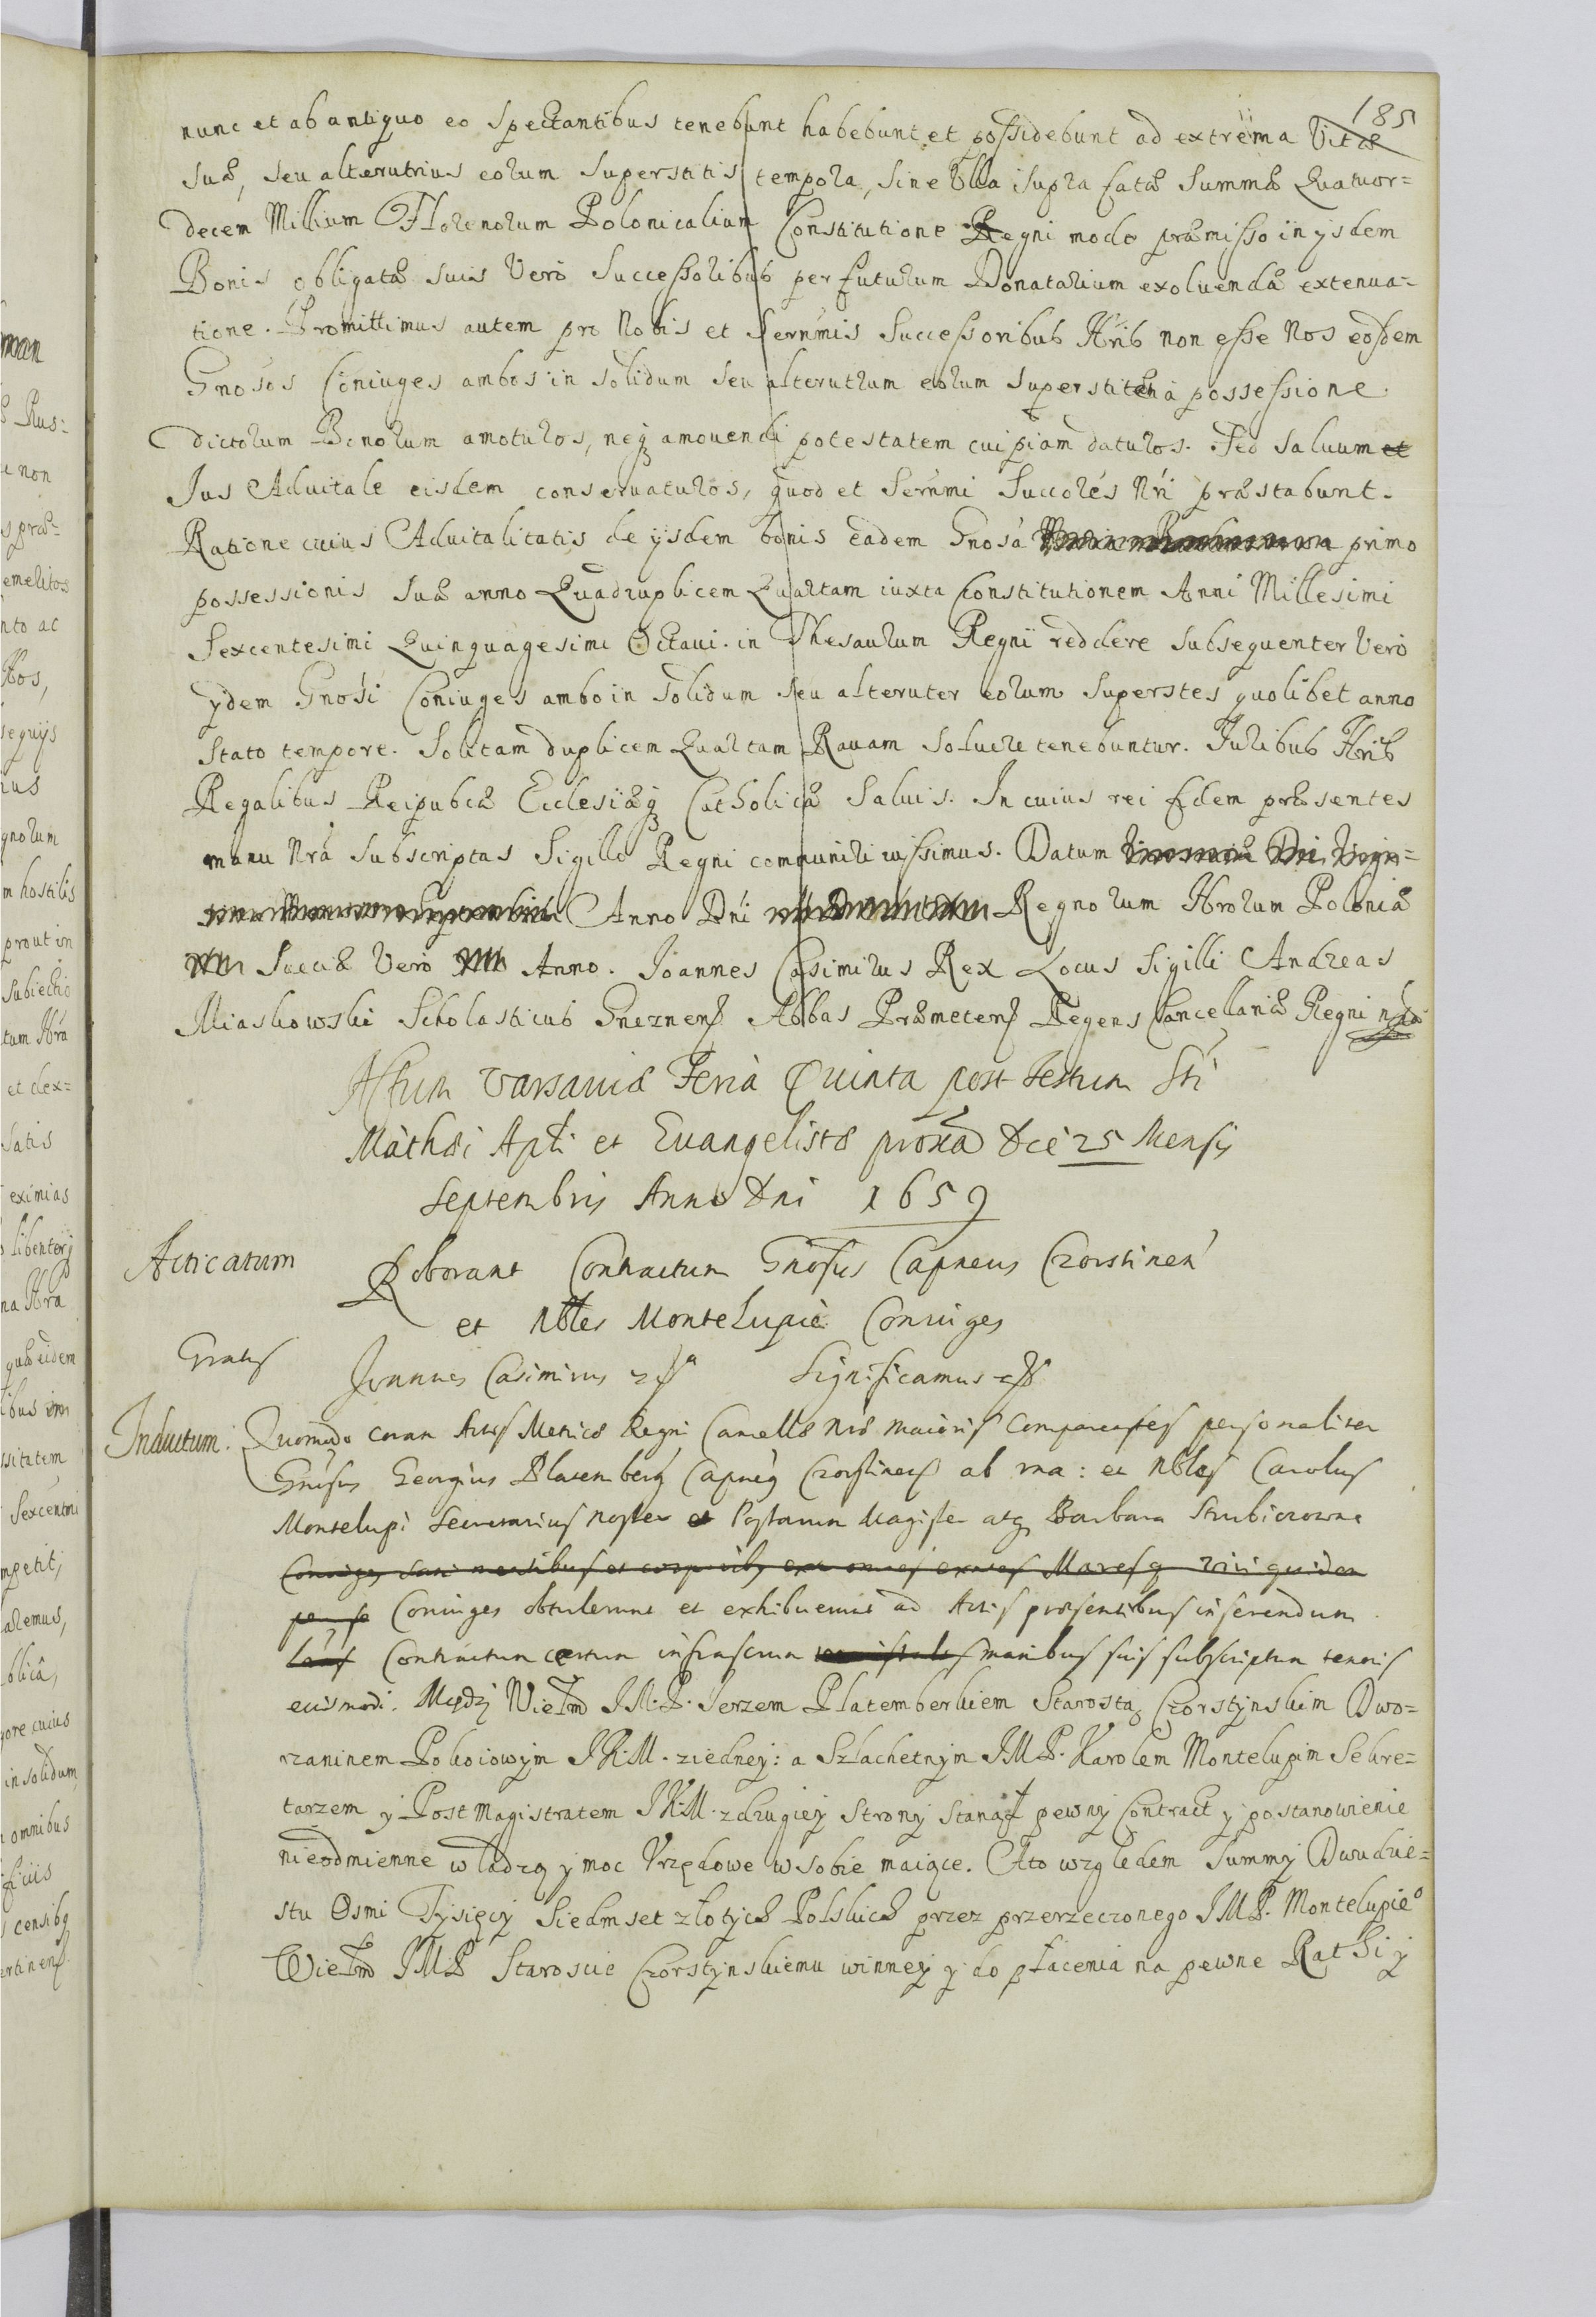 185
nunc et ab antiquo eo spectantibus tenebunt habebunt et possidebunt ad extrema Vitæ
suæ, seu alterutrius eorum superstitis tempora, sine Ulla supra fatæ Summæ Quatuor=
decem Millium Florenorum Polonicalium Constitutione Regni modo præmisso in ijsdem
Bonis obligatæ suis Vero Successoribus per futurum Donatarium exoluendæ extenua=
tione. Promittimus autem pro Nobis et Sernmis Successoribus Nris non esse Nos eosdem
Gnosos Coniuges ambos in solidum seu alterutrum eorum superstitem à possessione
dictorum Bonorum amoturos, neq amouendi potestatem cuipiam daturos. Sed saluum et
Ius Aduitale eisdem conseruaturos, quod et Sernmi Succores Nri præstabunt.
Ratione cuius Aduitalitatis de ijsdem bonis eadem Gnosa primo
possessionis suæ anno Quadruplicem Quartam iuxta Constitutionem Anni Millesimi
Sexcentesimi Quinquagesimi Octaui. in Thesaurum Regni reddere subsequenter Vero
ijdem Gnosi Coniuges ambo in solidum seu alteruter eorum superstes quolibet anno
stato tempore. Solitam duplicem Quartam Rauam soluere tenebuntur. Iuribus Nris
Regalibus Reipubcæ Ecclesiæq Catholicæ saluis. In cuius rei fidem præsentes
manu Nra subscriptas Sigillo Regni communiri iussimus. Datum
Anno Dni Regnorum Nrorum Poloniæ
Sueciæ Vero Anno. Joannes Casimirus Rex Locus Sigilli Andreas
Miaskowski Scholasticus Gneznens Abbas Præmetens Regens Cancellariæ Regni
Actum Varsauiæ Feria Quinta post Festum Sti
Mathæi Apli et Euangelistæ proxa Die 25 Mensis
Septembris Anno Dni 1659
Acticatum
Roborant Contractum Gnosus Capneus Czorstinen
et Nbles Montelupie Coniuges
Gratis
Joannes Casimirus Significamus
Inductum:
Quomodo coram Actis Metricæ Regni Cancellæ Nræ maioris Comparentes personaliter
Gnosus Georgius Platemberg Capneg Czorstinens ab vna: et Nbles Carolus
Montelupi Secretarius noster et Postarum Magister atq Barbara
Coniuges sani mentibus et
Coniuges obtulerunt et exhibuerunt ad Actis præsentibus inserendum
Contractum certum infrascrum manibus suis subscriptum tenoris
eiusmodi. Między Wielm J.M.P. Jerzem Platemberkiem Starostą Czorstynskim Dwo=
rzaninem Pokoiowym JKM. ziedney: a Szlachetnym JMP. Karolem Montelupim Sekre=
tarzem y Post Magistratem JKM. zdrugiey Strony stanął pewny Contract y postanowienie
nieodmienne władzą y moc Vrzędowe wsobie maiące. Ato względem Summy Dwudzie=
stu Osmi Tysięcy siedmset złotych Polskich przez przerzeczonego JMP. Montelupieo
Wielm JMP Staroscie Czorstynskiemu winney y do płacenia na pewne Rathi y